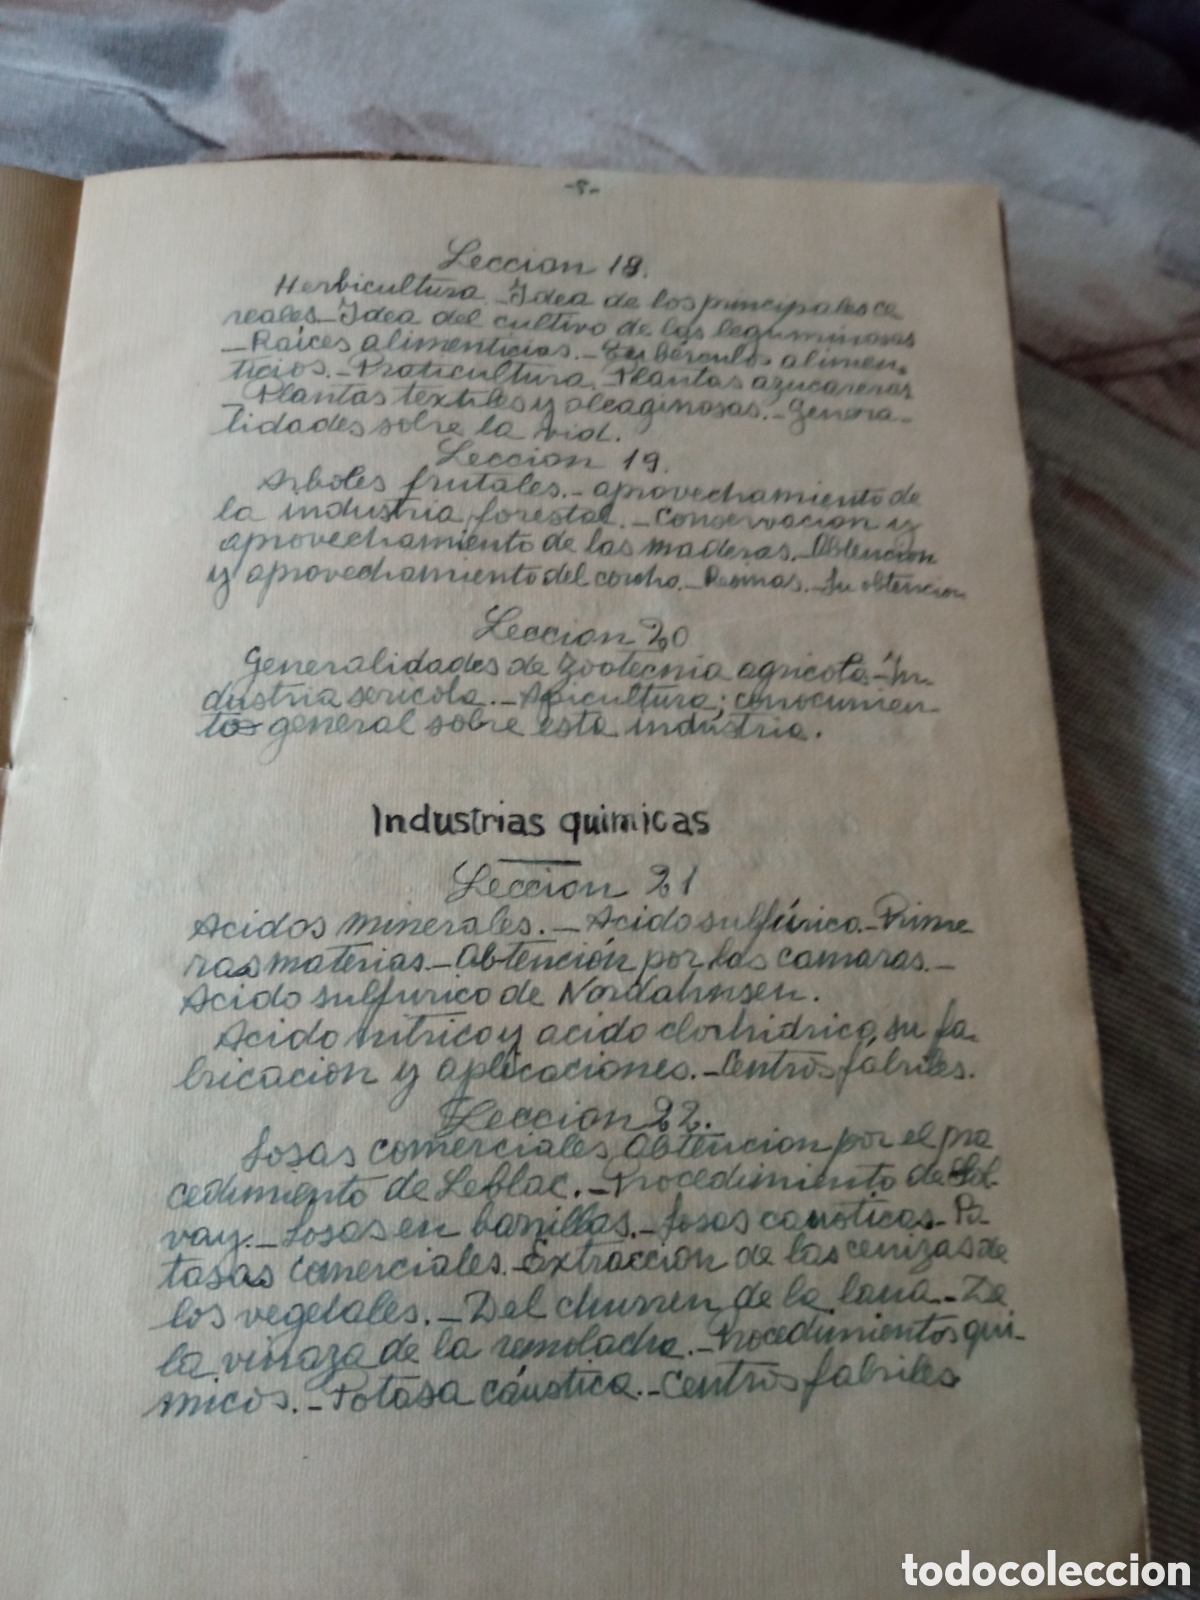 -8-
Leccion 18.
Herbicultura.-Idea de los principales ce
reales-Idea del cultivo de las leguminosas
-Raíces alimenticias.-Tubérculos alimen.
ticios.-Praticultura. Plantas azucareras
Plantas textiles y oleaginosas.-Genera-
lidades sobre la vid.
Leccion 19.
Arboles frutales.-aprovechamiento de
la industria forestal.-Conservacion y
aprovechamiento de las maderas.-Obtencion
y aprovechamiento del corcho.-Resinas.-Su obtencion
Leccion 20
Generalidades de Zootecnia agricola-In-
dustria sericola.-Apicultura; conocimien-
to general sobre esta industria.
Industrias quimicas
Leccion 21
Acidos minerales.-Acido sulfúrico.-Prime
ras materias.-Obtención por las camaras.-
Acido sulfurico de Nordahusen.
Acido nitrico y acido clorhidrico, su fa-
bricacion y aplicaciones.-Centros fabriles.
Leccion 22.
Sosas comerciales, Obtencion por el pro
cedimiento de Leblac.-Procedimiento de Sol-
vay.-Sosas en barrillas.-Sosas causticas-Po-
tasas comerciales.-Extraccion de las cenizas de
los vegetales.-Del churren de la lana.-De
la vinaza de la remolacha.-Procedimientos quí-
micos.-Potasa cáustica.-Centros fabriles
todocoleccion